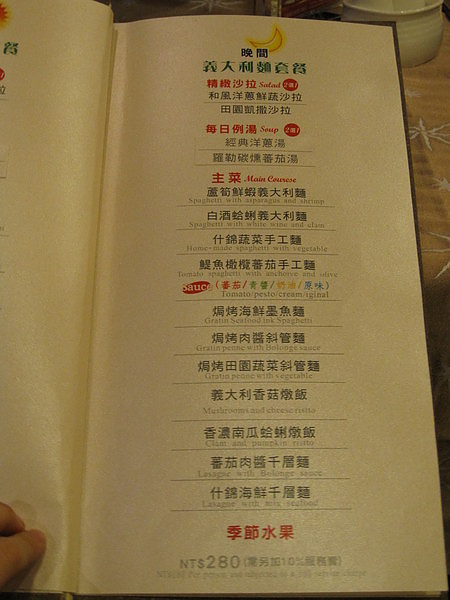 餐
晚間
義大利麵套餐
精緻沙拉 Salad 2選1
和風洋蔥鮮蔬沙拉
田園凱撒沙拉
每日例湯 Soup 2選1
經典洋蔥湯
羅勒碳燻蕃茄湯
主菜 Main Courese
蘆筍鮮蝦義大利麵
Spaghetti with asparagus and shrimp
白酒蛤蜊義大利麵
Spaghetti with white wine and clam
什錦蔬菜手工麵
Home-made spaghetti with vegetable
鯷魚橄欖蕃茄手工麵
Tomato spaghetti with anchovie and olive
Sauce (蕃茄/青醬/奶油/原味)
Tomato/pesto/cream/iginal
焗烤海鮮墨魚麵
Gratin Seafood ink Spaghetti
焗烤肉醬斜管麵
Gratin penne with Bolonge sauce
焗烤田園蔬菜斜管麵
Gratin penne with vegetable
義大利香菇燉飯
Mushrooms and cheese ristto
香濃南瓜蛤蜊燉飯
Clam and pumpkin ristto
蕃茄肉醬千層麵
Lasagne with Bolonge sauce
什錦海鮮千層麵
Lasagne with mix seafood
季節水果
NT$280(需另加10%服務費)
NT$280 Per person and subjected to a 10% service charge